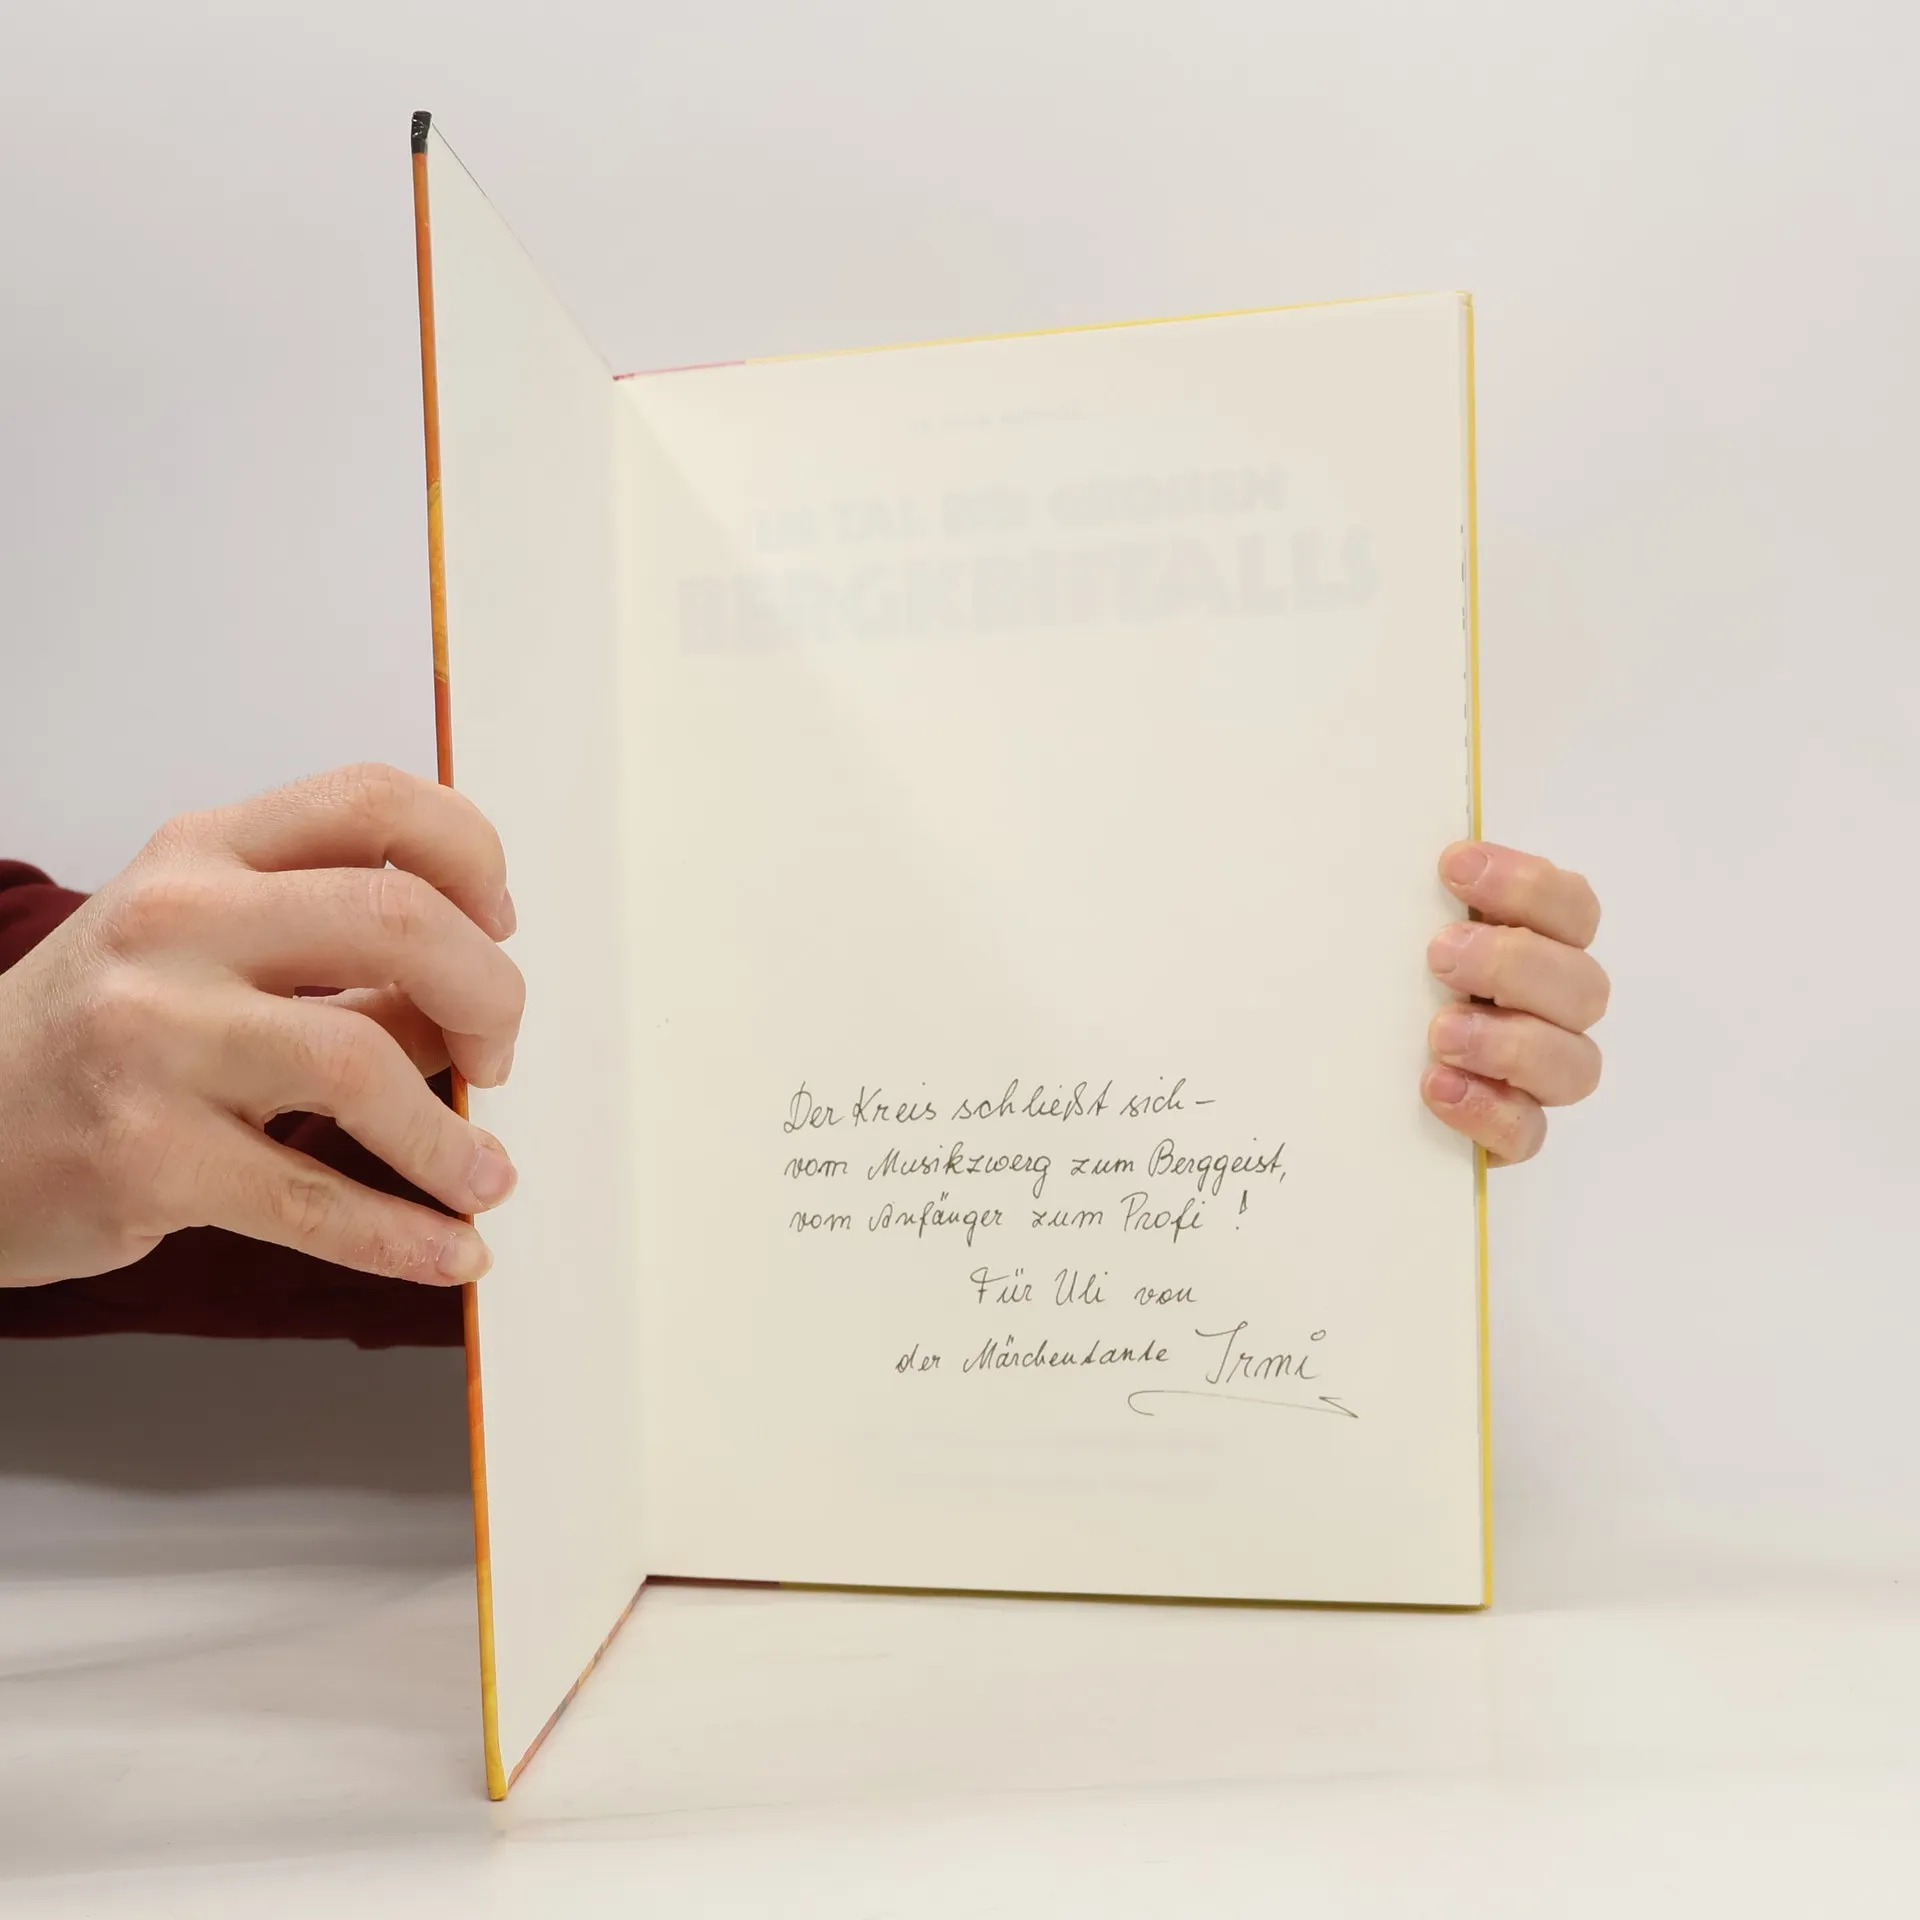 IM TAL DER GROSSEN
BERGKRISTALLE
Der Kreis schließt sich –
vom Musikzwerg zum Berggeist,
vom Anfänger zum Profi !
Für Uli von
der Märchentante Irmi